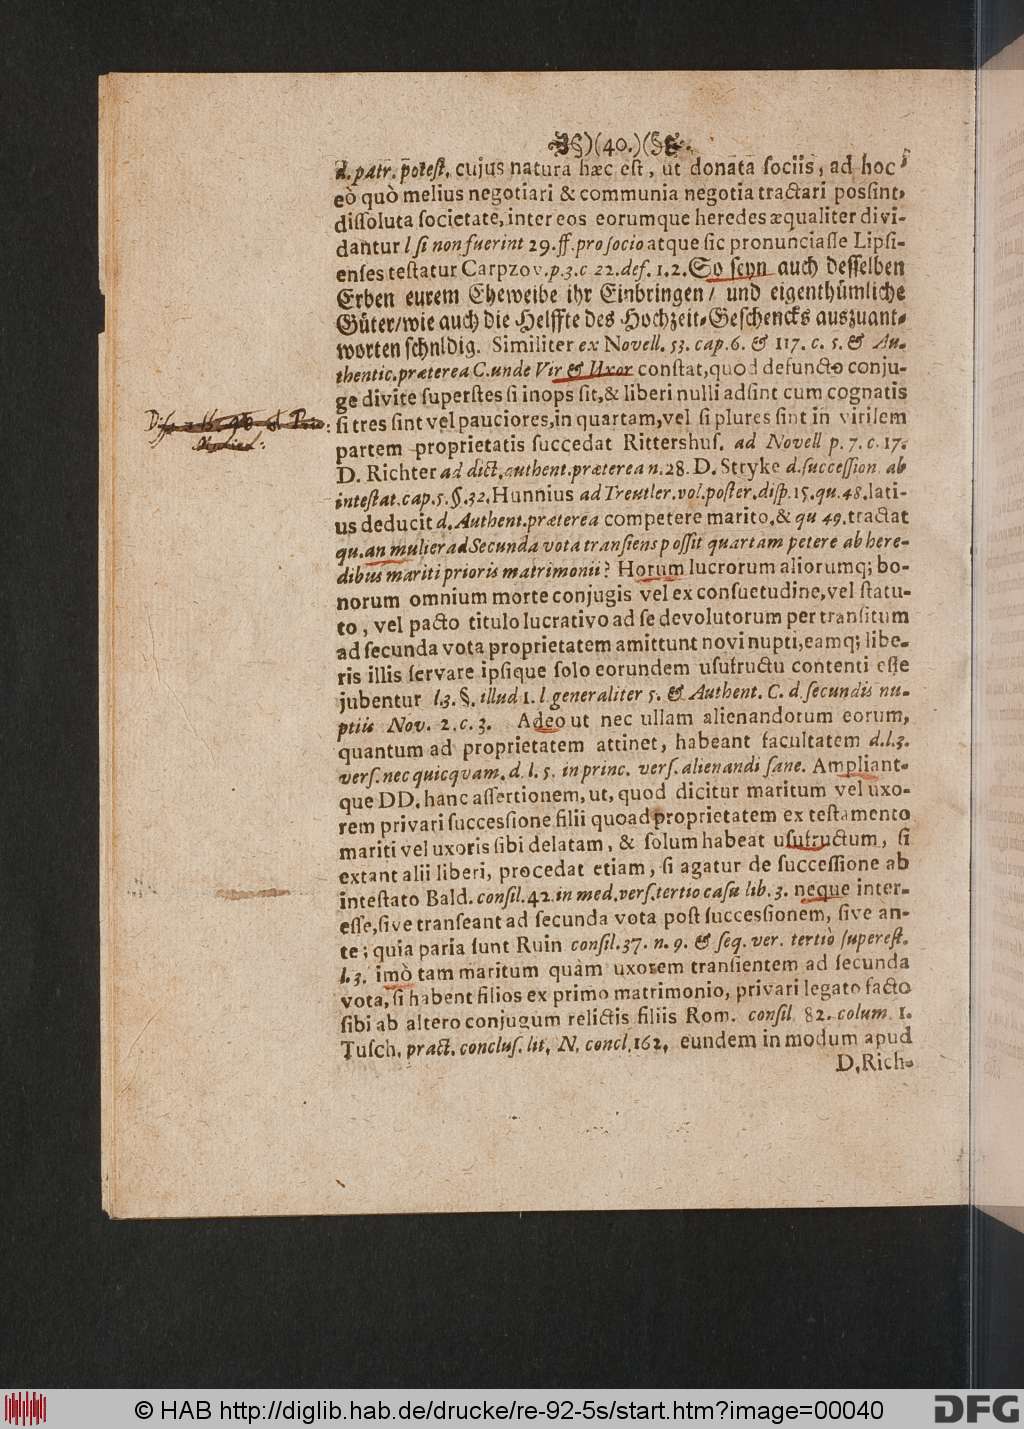 (40.)
d. patr. potest. cujus natura hæc est, ut donata sociis, ad hoc
eò quò melius negotiari & communia negotia tractari possint,
dissoluta societate, inter eos eorumque heredes æqualiter divi-
dantur l si non fuerint 29. ff. pro socio atque sic pronunciasse Lipsi-
enses testatur Carpzov. p. 3. c 22. def. 1. 2. So seyn auch desselben
Erben eurem Eheweibe ihr Einbringen / und eigenthümliche
Güter/ wie auch die Helffte des Hochzeit-Geschencks auszuant-
worten schnldig. Similiter ex Novell. 53. cap. 6. & 117. c. 5. & Au-
thentic. præterea C. unde Vir & Uxor constat, quod defuncto conju-
ge divite superstes si inops sit, & liberi nulli adsint cum cognatis
si tres sint vel pauciores, in quartam, vel si plures sint in virilem
partem proprietatis succedat Rittershus. ad Novell p. 7. c. 17.
D. Richter ad dict. authent. præterea n. 28. D. Stryke d. succession. ab
intestat. cap. 5. §. 32. Hunnius ad Treutler. vol. poster. disp. 15. qu. 48. lati-
us deducit d. Authent. præterea competere marito, & qu 49. tractat
qu. an mulier ad Secunda vota transiens possit quartam petere ab here-
dibus mariti prioris matrimonii? Horum lucrorum aliorumq; bo-
norum omnium morte conjugis vel ex consuetudine, vel statu-
to, vel pacto titulo lucrativo ad se devolutorum per transitum
ad secunda vota proprietatem amittunt novi nupti, eamq; libe-
ris illis servare ipsique solo eorundem usufructu contenti esse
jubentur l. 3. §. illud 1. l generaliter 5. & Authent. C. d. secundis nu-
ptiis Nov. 2. c. 3. Adeo ut nec ullam alienandorum eorum,
quantum ad proprietatem attinet, habeant facultatem d. l. 3.
vers. nec quicquam. d. l. 5. in princ. vers. alienandi sane. Ampliant-
que DD. hanc assertionem, ut, quod dicitur maritum vel uxo-
rem privari successione filii quoad proprietatem ex testamento
mariti vel uxoris sibi delatam, & solum habeat usufructum, si
extant alii liberi, procedat etiam, si agatur de successione ab
intestato Bald. consil. 42. in med. vers. tertio casu lib. 3. neque inter-
esse, sive transeant ad secunda vota post successionem, sive an-
te; quia paria sunt Ruin consil. 37. n. 9. & seq. ver. tertiò superest.
l. 3. imò tam maritum quàm uxorem transientem ad secunda
vota, si habent filios ex primo matrimonio, privari legato facto
sibi ab altero conjugum relictis filiis Rom. consil. 82. colum. 1.
Tusch. pract. conclus. lit. N. concl. 162. eundem in modum apud
D. Rich-
© HAB http://diglib.hab.de/drucke/re-92-5s/start.htm?image=00040
DFG